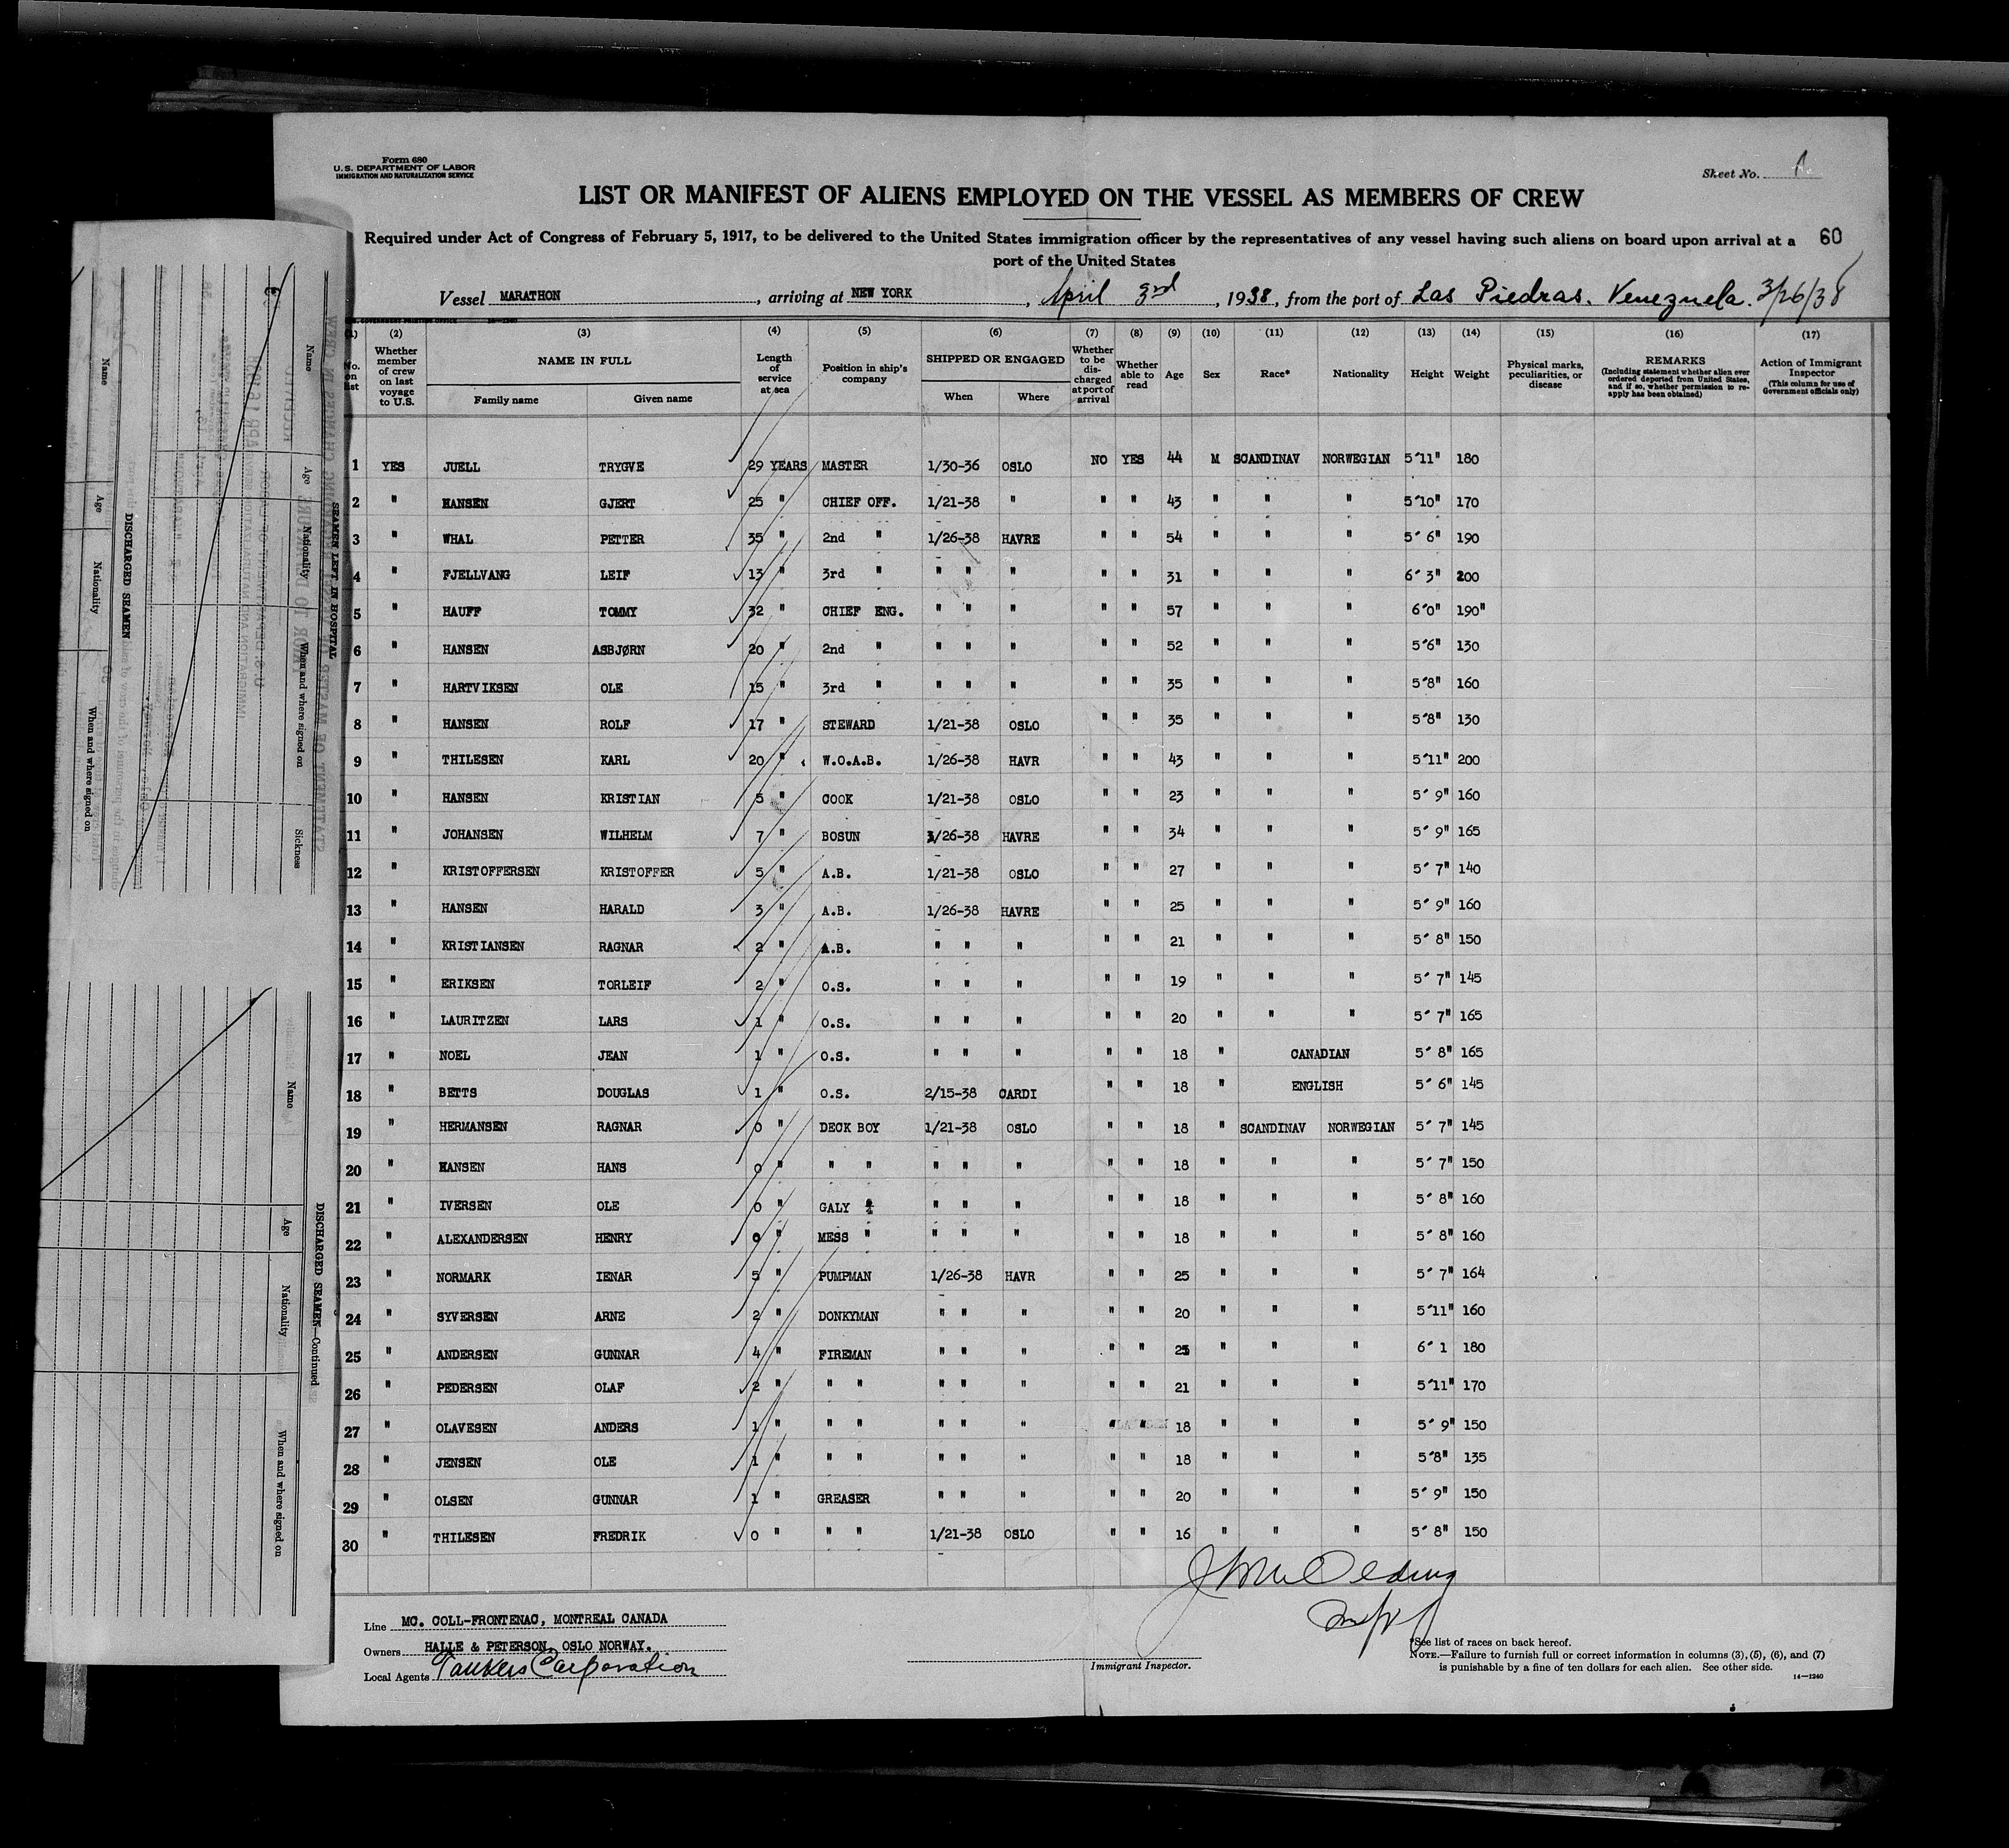 Form 680
U.S. DEPARTMENT OF LABOR
IMMIGRATION AND NATURALIZATION SERVICE
Sheet No. 1
LIST OR MANIFEST OF ALIENS EMPLOYED ON THE VESSEL AS MEMBERS OF CREW
Required under Act of Congress of February 5, 1917, to be delivered to the United States immigration officer by the representatives of any vessel having such aliens on board upon arrival at a
port of the United States
60
Vessel MARATHON, arriving at NEW YORK, April 3rd, 1938, from the port of Las Piedras. Venezuela. 3/26/38
(1) (2) (3) (4) (5) (6) (7) (8) (9) (10) (11) (12) (13) (14) (15) (16) (17)
No. on list
Whether member of crew on last voyage to U.S.
NAME IN FULL
Family name Given name
Length of service at sea
Position in ship's company
SHIPPED OR ENGAGED
When Where
Whether to be discharged at port of arrival
Whether able to read
Age
Sex
Race*
Nationality
Height
Weight
Physical marks, peculiarities, or disease
REMARKS
(Including statement whether alien ever ordered deported from United States, and if so, whether permission to reapply has been obtained)
Action of Immigrant Inspector
(This column for use of Government officials only)
1 YES JUELL TRYGVE 29 YEARS MASTER 1/30-36 OSLO NO YES 44 M SCANDINAV NORWEGIAN 5'11" 180
2 " HANSEN GJERT 25 " CHIEF OFF. 1/21-38 " " " 43 " " " 5'10" 170
3 " WHAL PETTER 35 " 2nd " 1/26-38 HAVRE " " 54 " " " 5' 6" 190
4 " FJELLVANG LEIF 13 " 3rd " " " " " " 31 " " " 6' 3" 200
5 " HAUFF TOMMY 32 " CHIEF ENG. " " " " " 57 " " " 6'0" 190"
6 " HANSEN ASBJØRN 20 " 2nd " " " " " " 52 " " " 5'6" 130
7 " HARTVIKSEN OLE 15 " 3rd " " " " " " 35 " " " 5'8" 160
8 " HANSEN ROLF 17 " STEWARD 1/21-38 OSLO " " 35 " " " 5'8" 130
9 " THILESEN KARL 20 " W.O.A.B. 1/26-38 HAVR " " 43 " " " 5'11" 200
10 " HANSEN KRISTIAN 5 " COOK 1/21-38 OSLO " " 23 " " " 5' 9" 160
11 " JOHANSEN WILHELM 7 " BOSUN 1/26-38 HAVRE " " 34 " " " 5' 9" 165
12 " KRISTOFFERSEN KRISTOFFER 5 " A.B. 1/21-38 OSLO " " 27 " " " 5' 7" 140
13 " HANSEN HARALD 3 " A.B. 1/26-38 HAVRE " " 25 " " " 5' 9" 160
14 " KRISTIANSEN RAGNAR 2 " A.B. " " " " " 21 " " " 5' 8" 150
15 " ERIKSEN TORLEIF 2 " O.S. " " " " " 19 " " " 5' 7" 145
16 " LAURITZEN LARS 1 " O.S. " " " " " 20 " " " 5' 7" 165
17 " NOEL JEAN 1 " O.S. " " " " " 18 " CANADIAN 5' 8" 165
18 " BETTS DOUGLAS 1 " O.S. 2/15-38 CARDI " " 18 " ENGLISH 5' 6" 145
19 " HERMANSEN RAGNAR 0 " DECK BOY 1/21-38 OSLO " " 18 " SCANDINAV NORWEGIAN 5' 7" 145
20 " HANSEN HANS 0 " " " " " " " " 18 " " " 5' 7" 150
21 " IVERSEN OLE 0 " GALY " " " " " " 18 " " " 5' 8" 160
22 " ALEXANDERSEN HENRY 0 " MESS " " " " " " 18 " " " 5' 8" 160
23 " NORMARK IENAR 5 " PUMPMAN 1/26-38 HAVR " " 25 " " " 5' 7" 164
24 " SYVERSEN ARNE 2 " DONKYMAN " " " " " 20 " " " 5'11" 160
25 " ANDERSEN GUNNAR 4 " FIREMAN " " " " " " " " 6' 1 180
26 " PEDERSEN OLAF 2 " " " " " " " " 21 " " " 5'11" 170
27 " OLAVESEN ANDERS 1 " " " " " " " " 18 " " " 5' 9" 150
28 " JENSEN OLE 1 " " " " " " " " 18 " " " 5'8" 135
29 " OLSEN GUNNAR 1 " GREASER " " " " " 20 " " " 5' 9" 150
30 " THILESEN FREDRIK 0 " " " 1/21-38 OSLO " " 16 " " " 5' 8" 150
Line MC. COLL-FRONTENAC, MONTREAL CANADA
Owners HALLE & PETERSON, OSLO NORWAY.
Local Agents Tankers Corporation
Immigrant Inspector.
*See list of races on back hereof.
NOTE.—Failure to furnish full or correct information in columns (3), (5), (6), and (7)
is punishable by a fine of ten dollars for each alien. See other side.
14—1240
SEAMEN LEFT IN HOSPITAL
Name Age Nationality When and where signed on Sickness
DISCHARGED SEAMEN
Name Age Nationality When and where signed on
DISCHARGED SEAMEN—Continued
Name Age Nationality When and where signed on